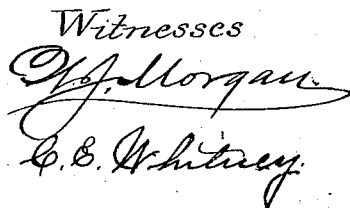 Witnesses
W. J. Morgan.
C. E. Whitney.